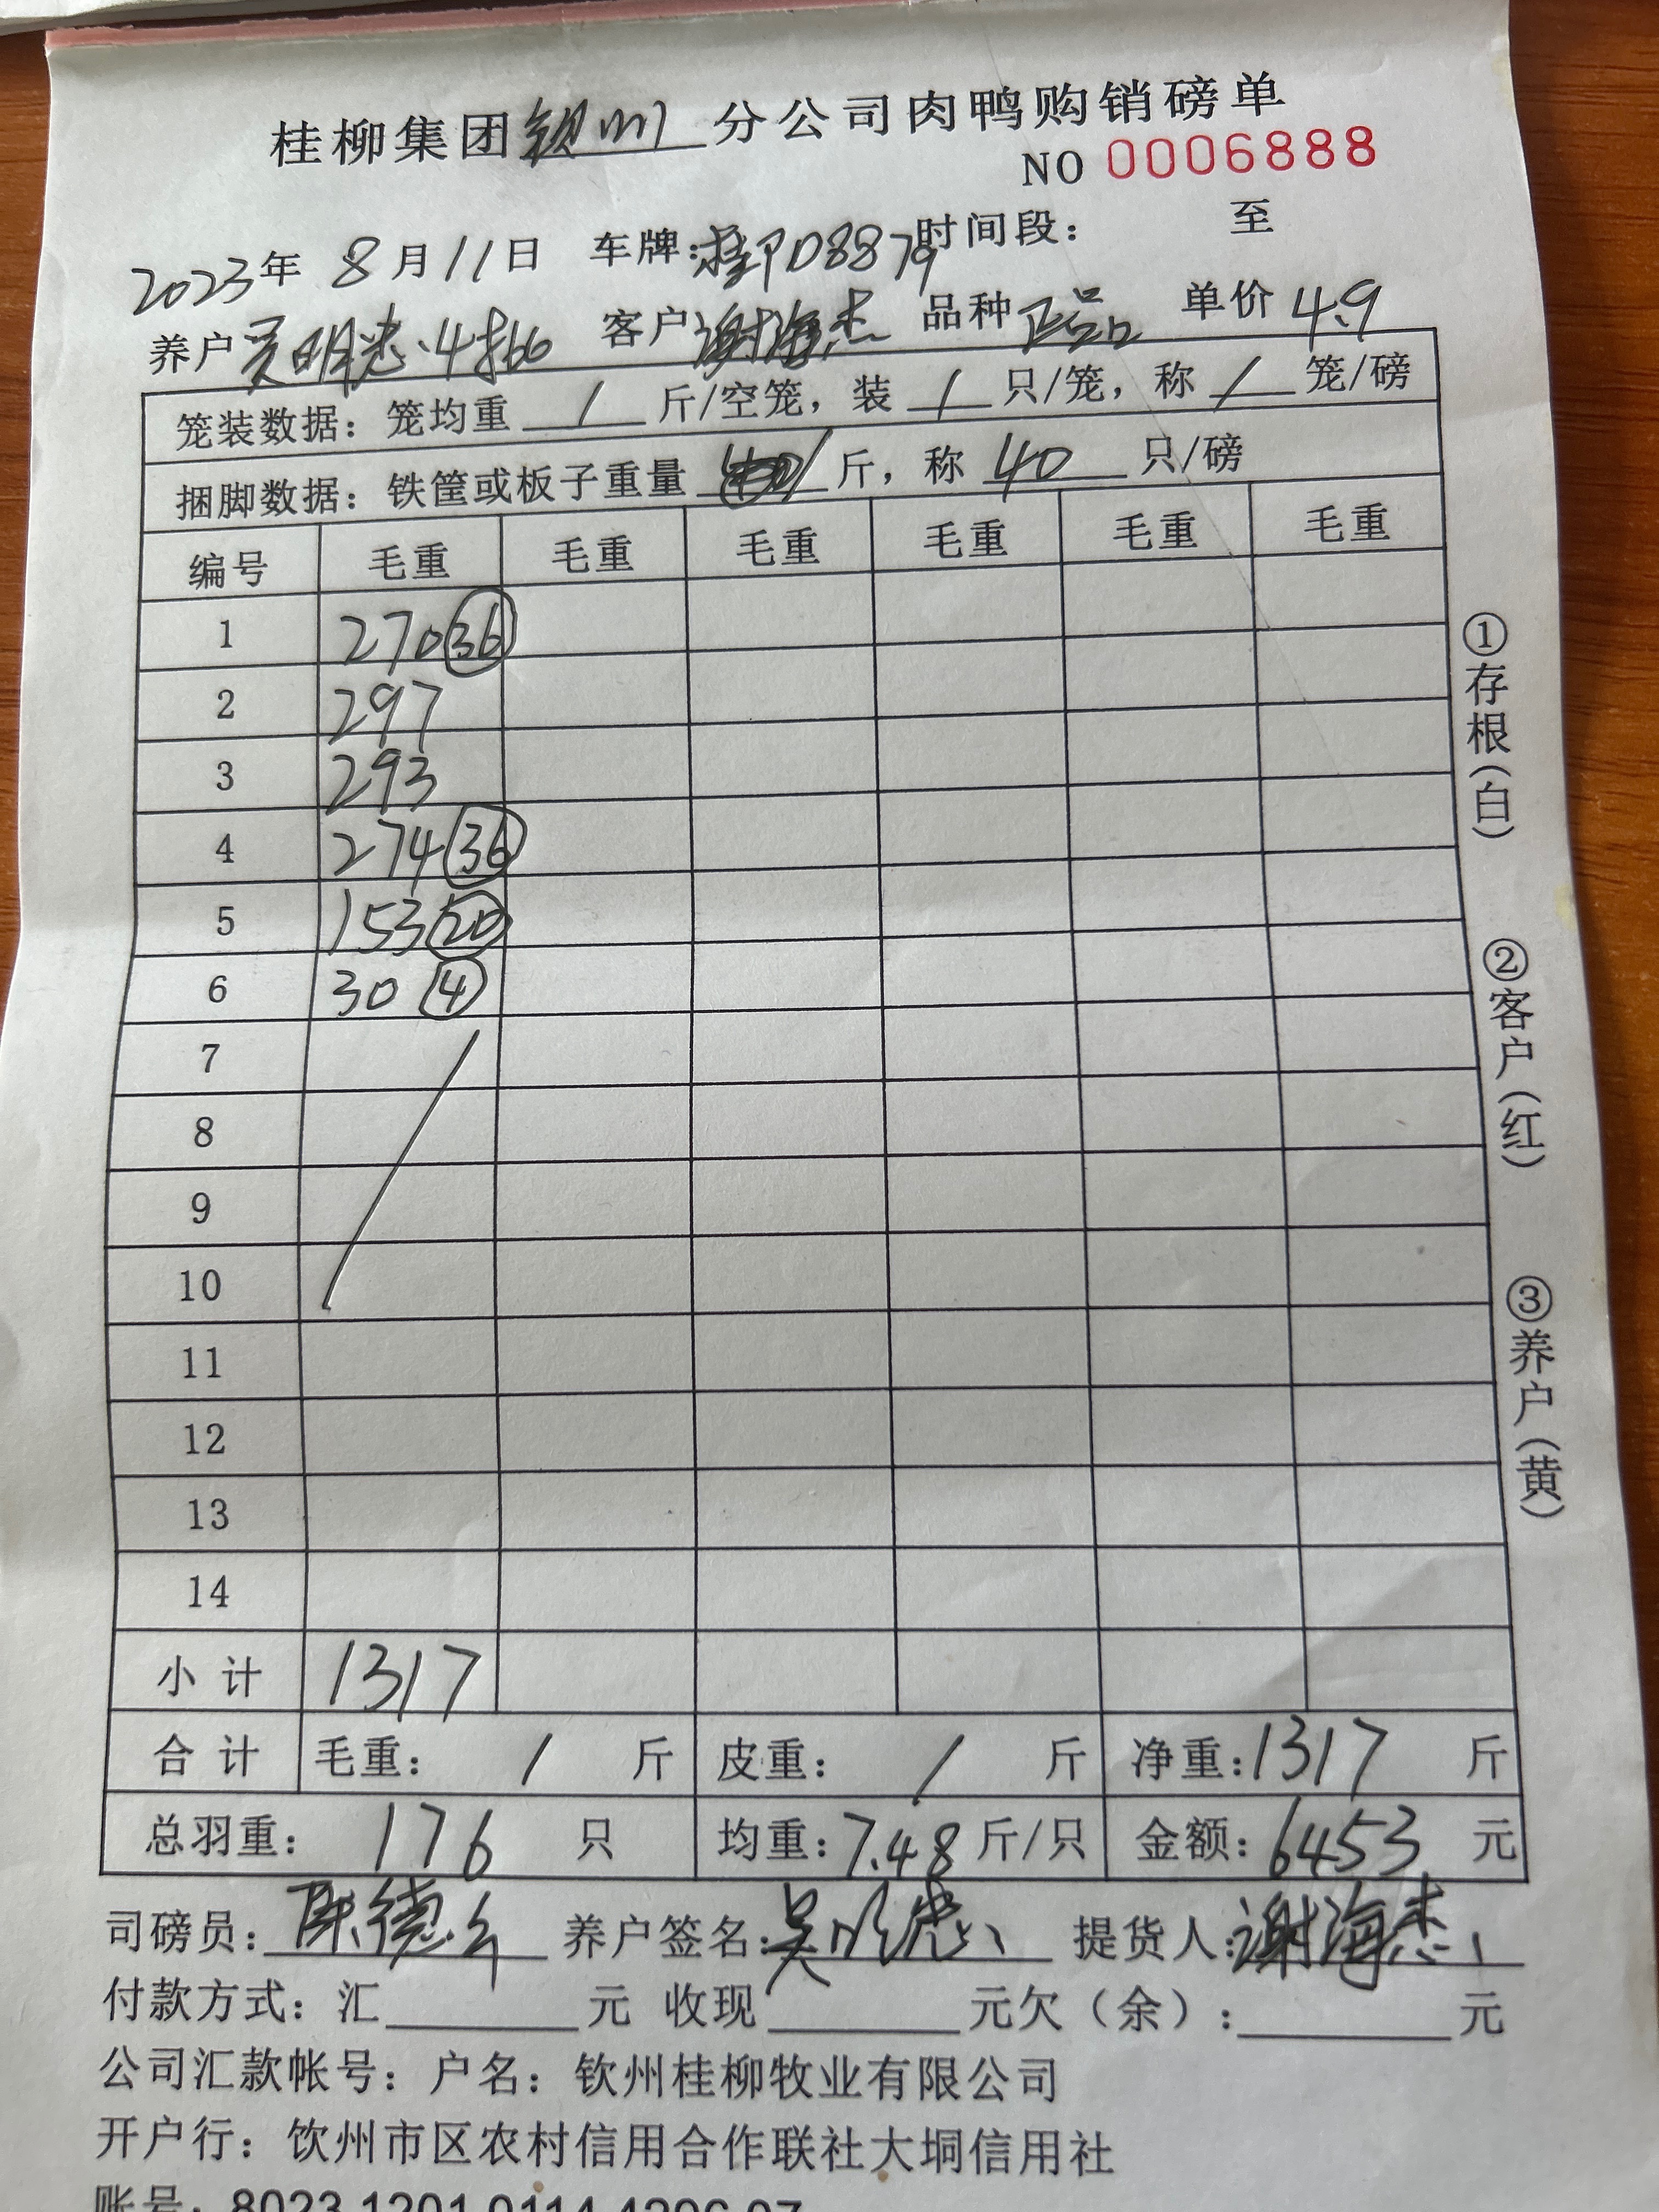 桂柳集团钦州分公司肉鸭购销磅单
NO 0006888
2023年 8月11日 车牌:桂PD8879 时间段: 至
养户吴明忠.4批 客户谢海杰 品种 正品 单价 4.9
笼装数据:笼均重 / 斤/空笼,装 / 只/笼,称 / 笼/磅
捆脚数据:铁筐或板子重量 / 斤,称 40 只/磅
编号 毛重 毛重 毛重 毛重 毛重 毛重
1 270 36
2 297
3 293
4 274 36
5 153 20
6 30 4
7
8
9
10
11
12
13
14
小计 1317
合计 毛重: / 斤 皮重: / 斤 净重:1317 斤
总羽重: 176 只 均重:7.48 斤/只 金额:6453 元
司磅员:陈德 养户签名:吴明忠 提货人:谢海杰
付款方式:汇 元 收现 元欠(余): 元
公司汇款帐号:户名:钦州桂柳牧业有限公司
开户行:饮州市区农村信用合作联社大垌信用社
账号:8023 1201 0114 4296 97
①存根(白)
②客户(红)
③养户(黄)